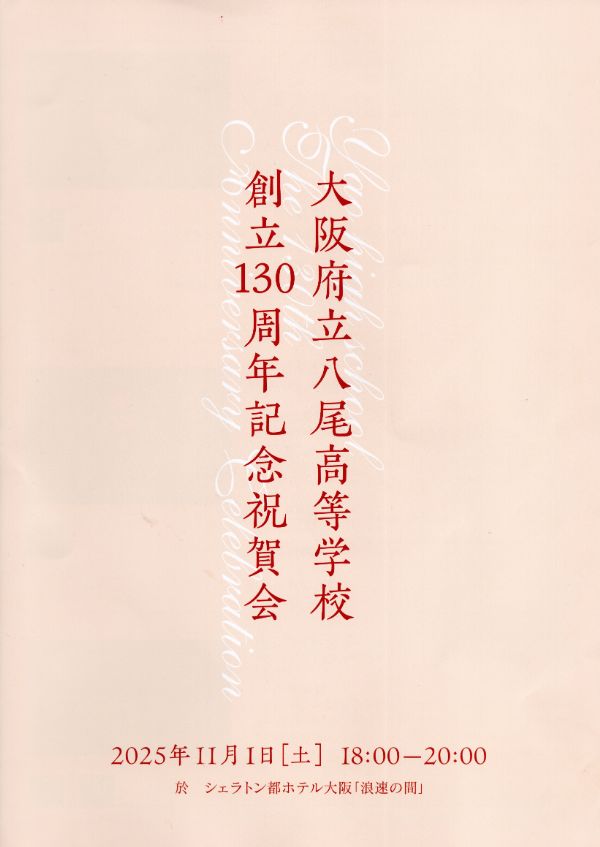 大阪府立八尾高等学校
創立130周年記念祝賀会
Yao high school
The 130th
Anniversary Celebration
2025年11月1日[土] 18:00—20:00
於 シェラトン都ホテル大阪「浪速の間」